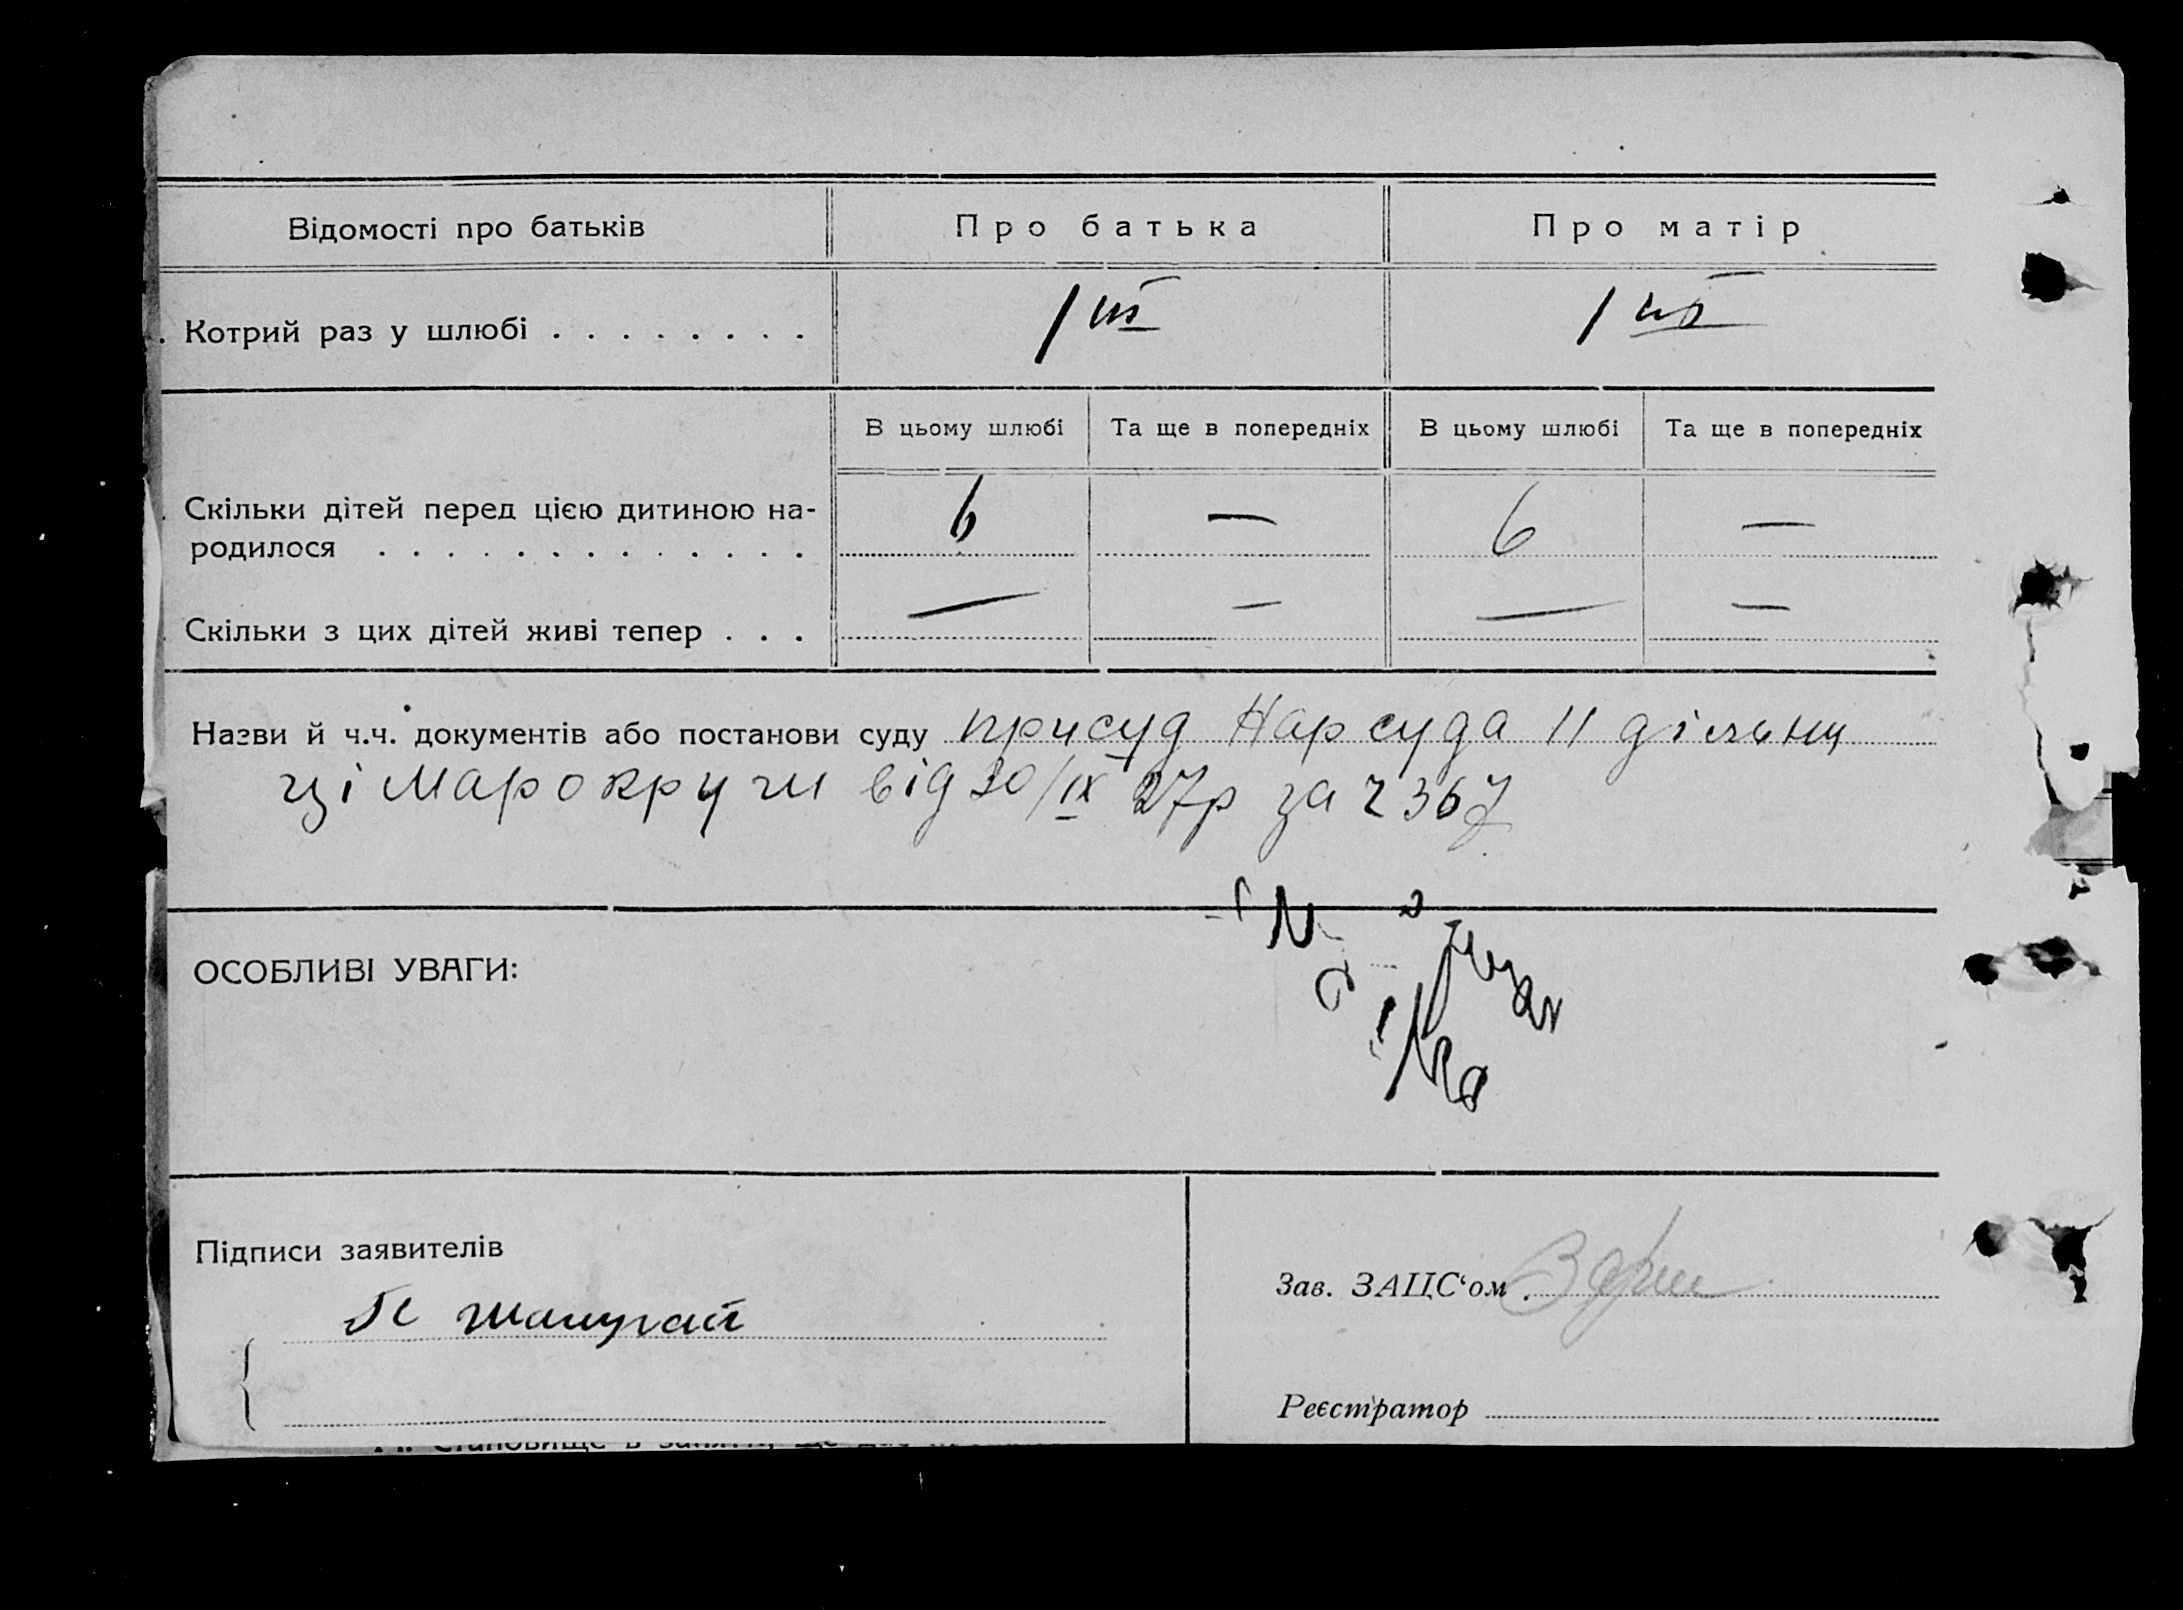 Відомості про батьків Про батька Про матір
Котрий раз у шлюбі . . . . . . . . 1 ий 1 ий
В цьому шлюбі Та ще в попередніх В цьому шлюбі Та ще в попередніх
Скільки дітей перед цією дитиною на-
родилося . . . . . . . . . . . . . 6 — 6 —
Скільки з цих дітей живі тепер . . . — — — —
Назви й ч.ч. документів або постанови суду присуд Нарсуда 11 дільни
ці Марокруги від 30/IX 27р за ч 367
ОСОБЛИВІ УВАГИ:
Підписи заявителів
Зав. ЗАЦС‘ом
Реєстратор